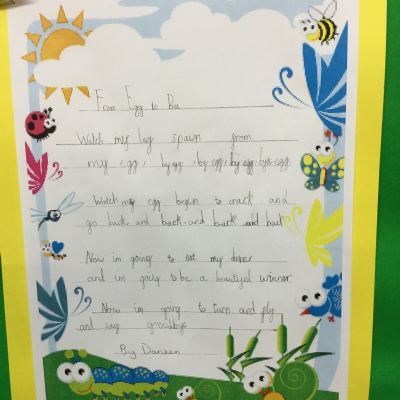 From Egg to Bee
Watch my leg spawn from
my egg, by egg, by egg, by egg, bye egg
Watch my egg begin to crack and
go back and back and back and back
Now im going to eat my dinner
and im going to be a beautiful winner
Now im going to turn and fly
and say goodbye
By Daneen